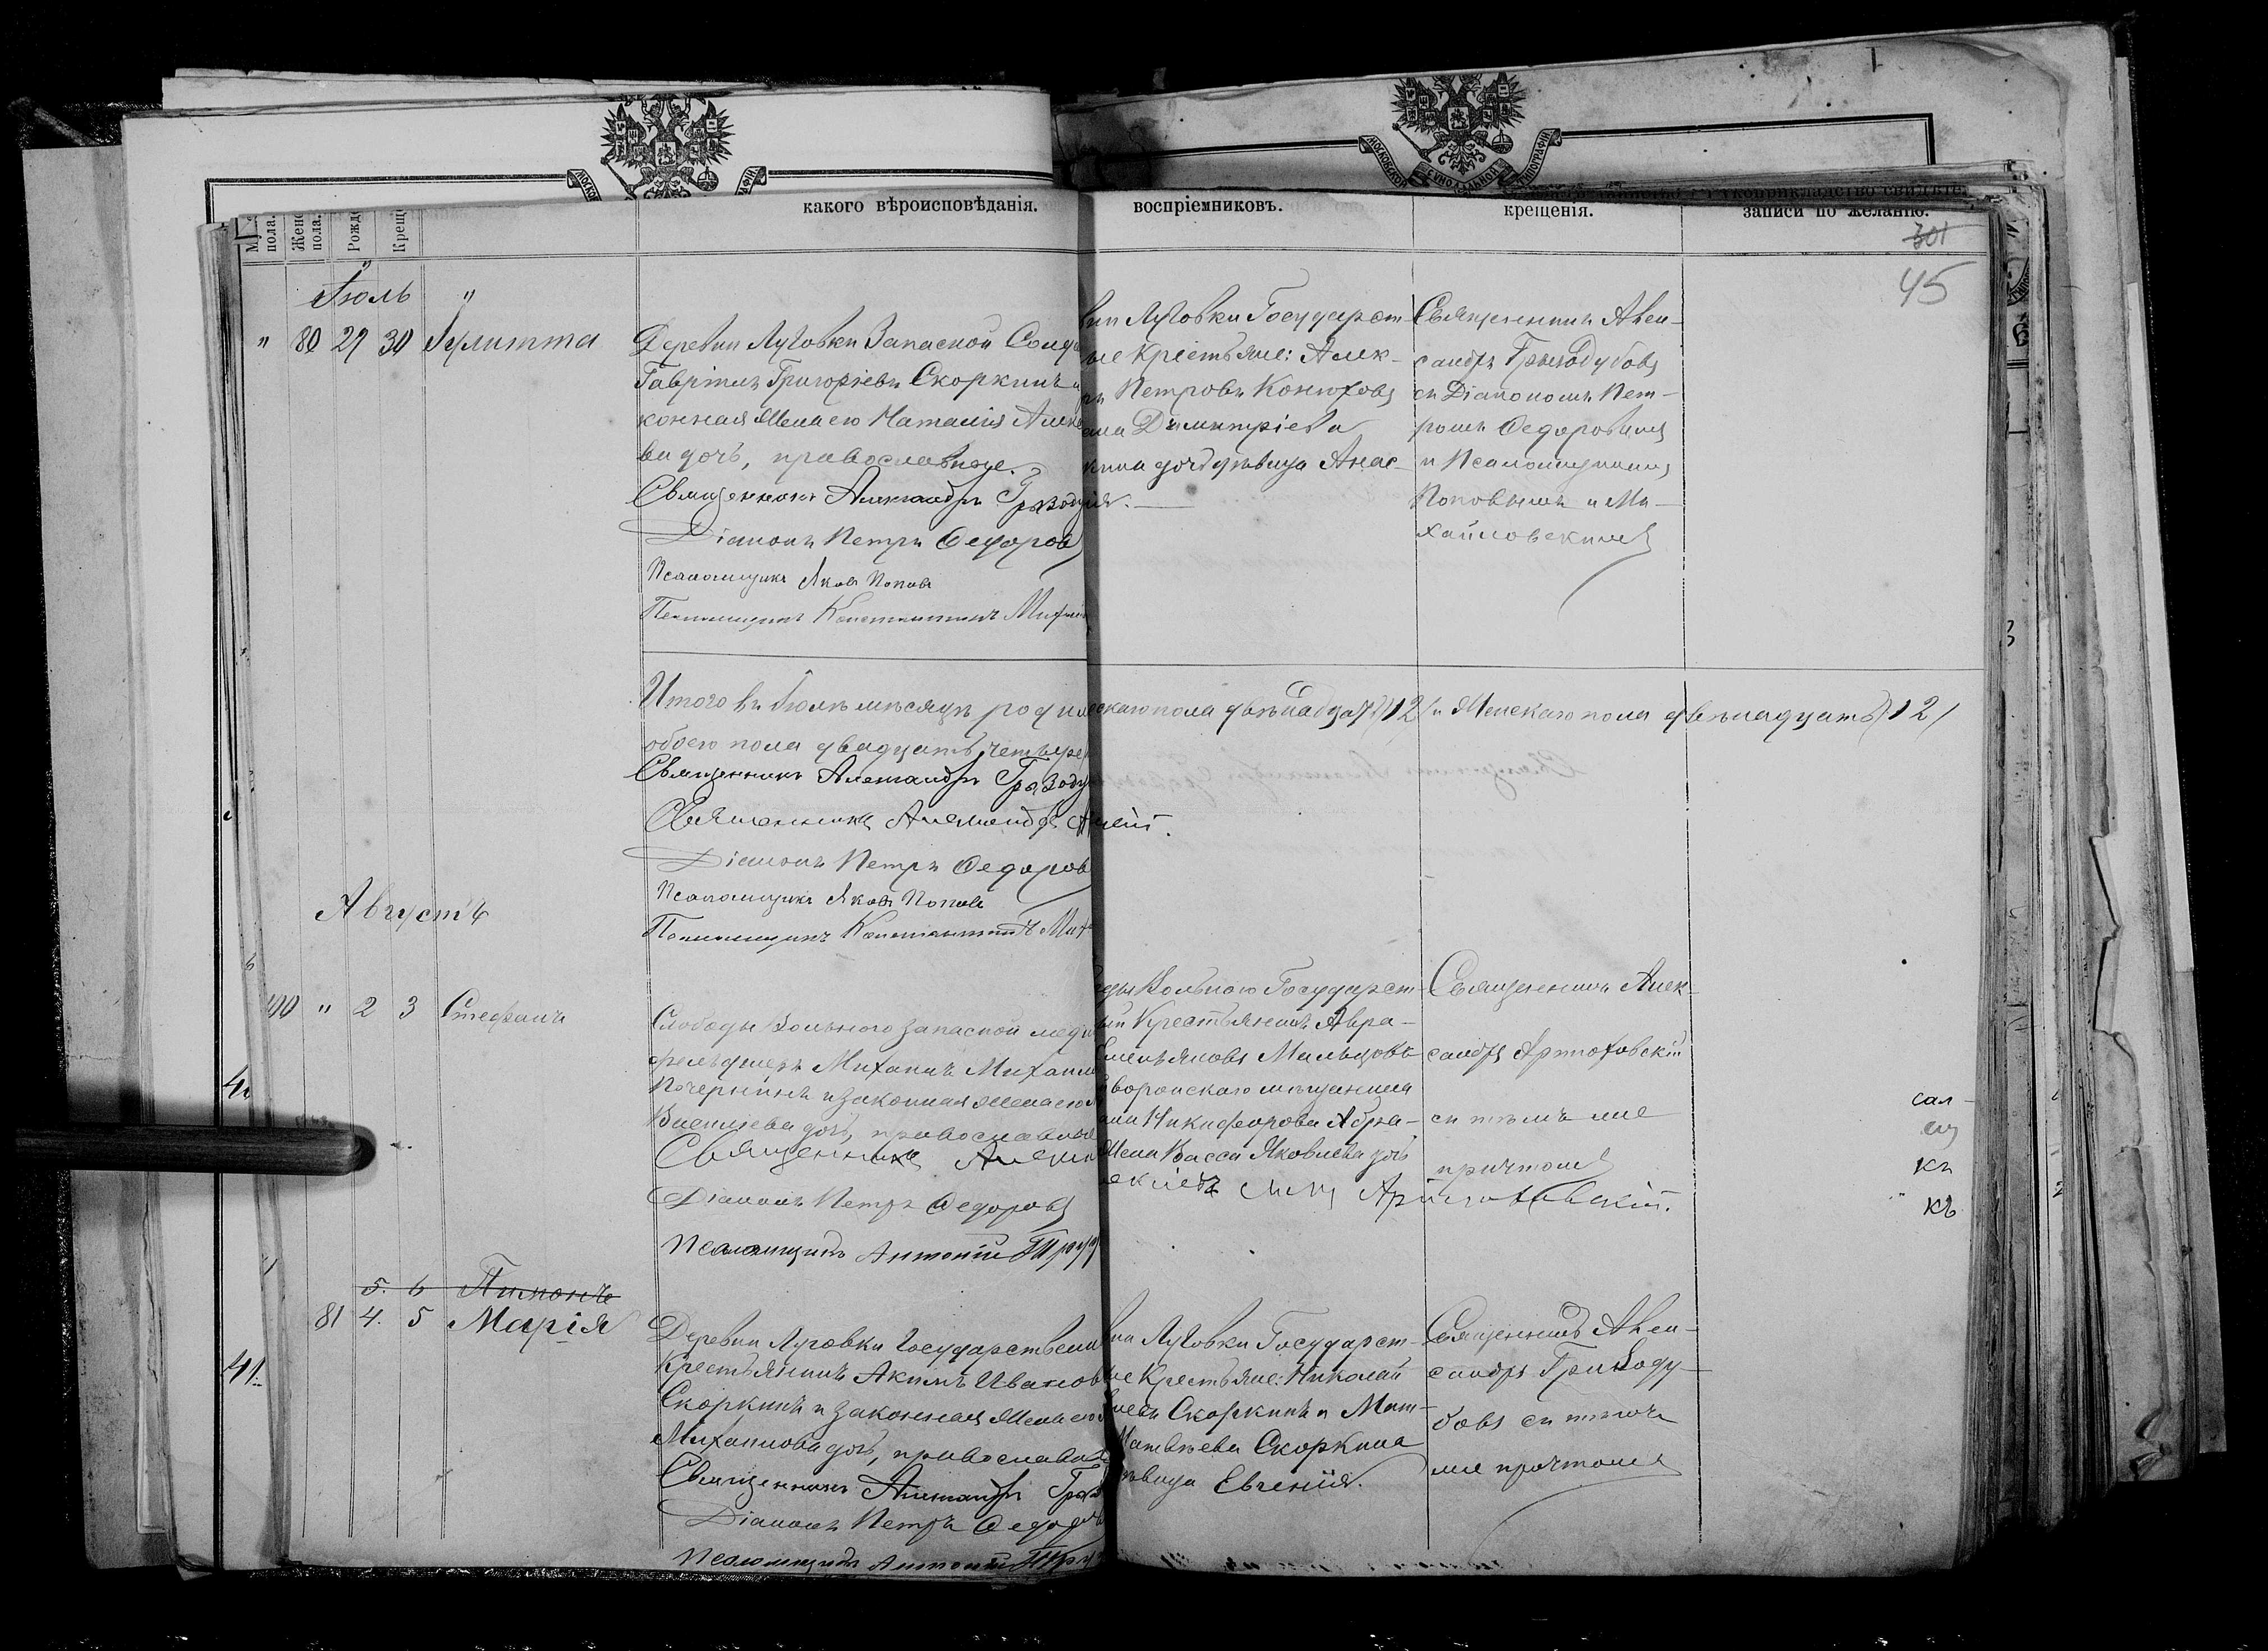 МОСКОВСКОЙ СѴНОДАЛЬНОЙ ТИПОГРАФІИ
пола.
Женс
пола.
Рожд
Крещ
какого вѣроисповѣданія.
воспріемниковъ.
крещенія.
записи по желанію.
301
45
Іюль "
" 80 29 30 Іулитта
Деревни Луговки Запасной Солд
Гавріилъ Григорьевъ Скоркинъ и
конная жена его Наталія Алекс
ва дочь, православные.
Священникъ Александръ Гризоду
Діаконъ Петръ Ѳедоровъ
Псаломщикъ Яковъ Поповъ
Псаломщикъ Константинъ Михай
вни Луговки Государст
ые Крестьяне: Алек-
ръ Петровъ Конюховъ
Димитріева
кина дочь дѣвица Анас-
ія.
Священникъ Алек-
сандръ Гризодубовъ
съ Діакономъ Пет-
ромъ Ѳедоровымъ
и Псаломщиками
Поповымъ и Ми-
хайловскимъ
Итого въ Іюлѣ мѣсяцѣ роди
ескаго пола двѣнадцать /12/ и Женскаго пола двѣнадцать /12/
обоего пола двадцать четыре
Священникъ Александръ Гризоду
Священникъ Александръ
Діаконъ Петръ Ѳедоровъ
Псаломщикъ Яковъ Поповъ
Псаломщикъ Константинъ Мих
Августъ
40 " 2 3 Стефанъ
Слободы Вольного запасной меди
фельдшеръ Михаилъ Михаил
и законная жена его
дочь, православные
Священникъ Алекса
Діаконъ Петръ Ѳедоровъ
Псаломщикъ Антоній
оды Вольного Государст-
ый Крестьянинъ Авра-
Мальцовъ
мѣщанина
Никифорова Абра-
жена Васса Яковлева дочь
Священникъ Алек-
сандръ Артюховскій
съ тѣмъ же
причтомъ
Артюховскій.
сал-
къ
къ
5. 6 Пимонъ
81 4. 5 Марія
41.
Деревни Луговки Государствен
Крестьянинъ Акимъ Иванов
Скоркинъ и законная жена его
Михаилова дочь, православн
Священникъ Александръ Гриз
Діаконъ Петръ Ѳедоровъ
Псаломщикъ Антоній
вни Луговки Государст-
ые Крестьяне: Николай
Скоркинъ и Мат-
Матвѣева Скоркина
ѣвица Евгенія.
Священникъ Алек-
сандръ Гризоду-
бовъ съ тѣмъ
же причтомъ